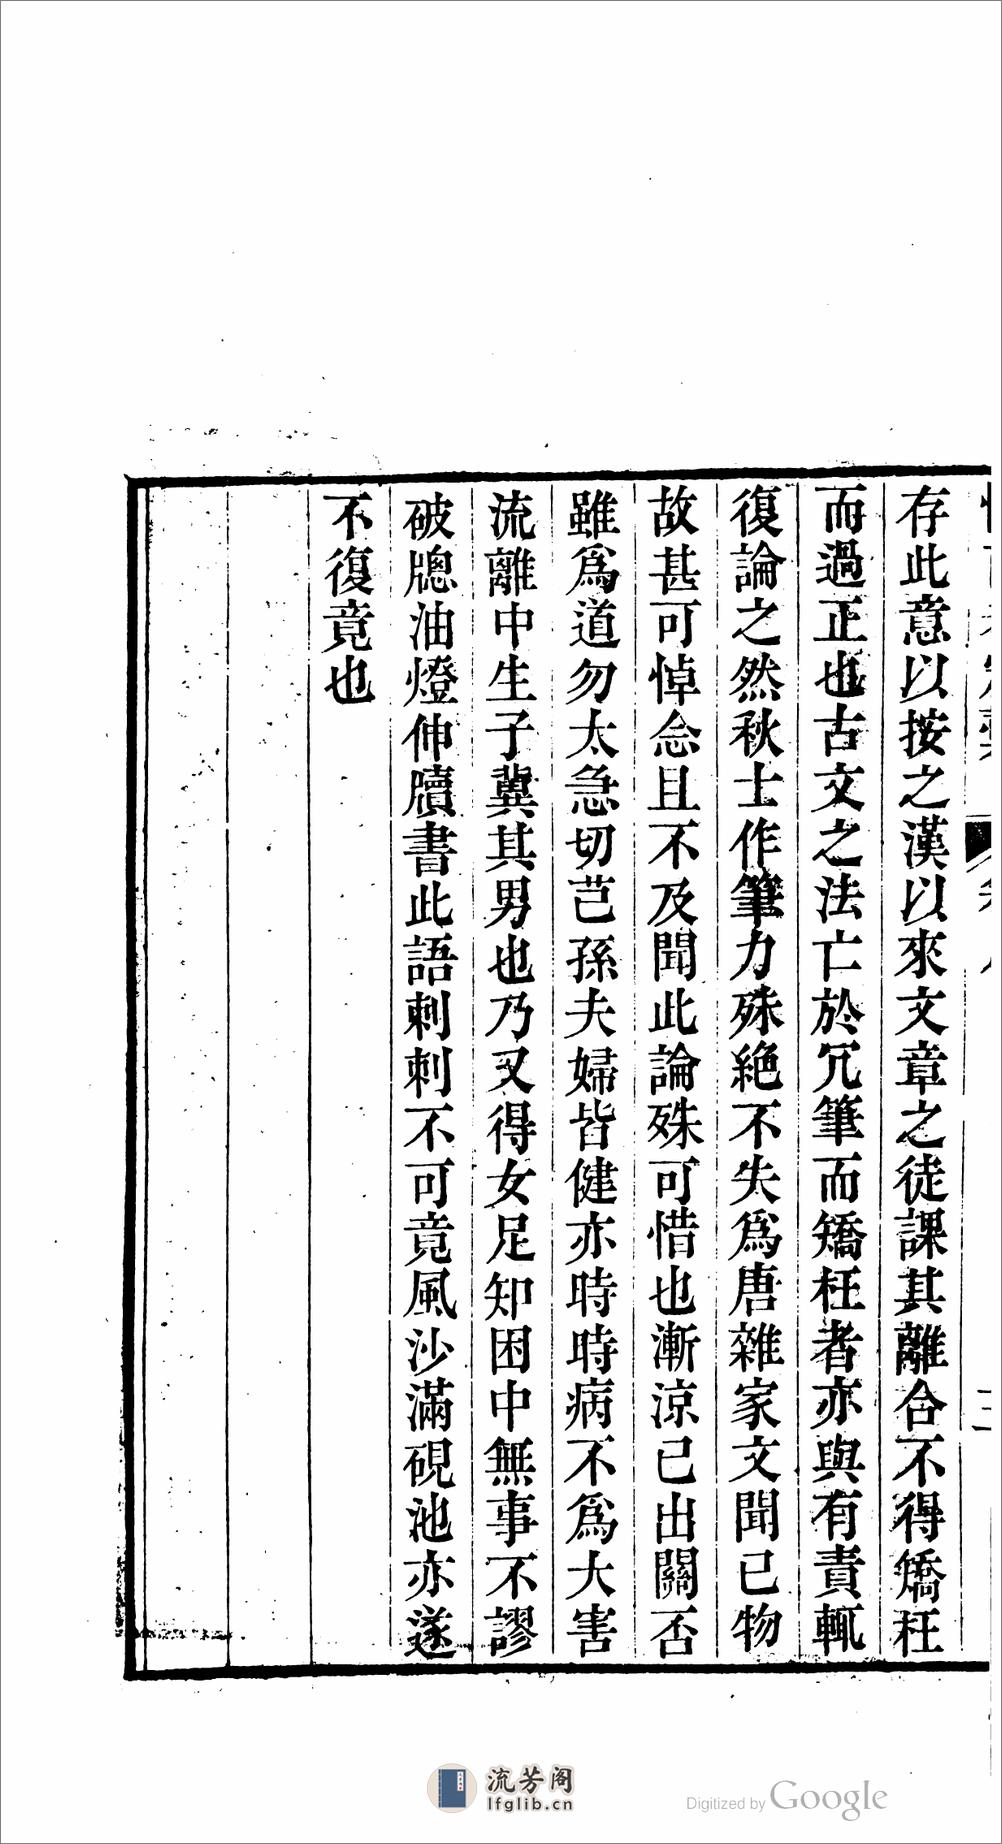 存此意以按之漢以來文章之徒課其離合不得矯枉
而過正也古文之法亡於冗筆而矯枉者亦與有責輒
復論之然秋士作筆力殊絕不失爲唐雜家文聞已物
故甚可悼念且不及聞此論殊可惜也漸涼已出關否
雖爲道勿太急切芑孫夫婦皆健亦時時病不爲大害
流離中生子冀其男也乃又得女足知困中無事不謬
破牕油燈伸牘書此語剌剌不可竟風沙滿硯池亦遂
不復竟也
流芳阁
lfglib.cn
Digitized by Google